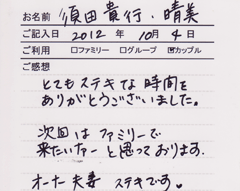 お名前 須田貴行・晴美
ご記入日 2012 年 10 月 4 日
ご利用 □ファミリー □グループ ☑カップル
ご感想
とてもステキな時間を
ありがとうございました。
次回はファミリーで
来たいなァーと思っております。
オーナー夫妻 ステキです♥